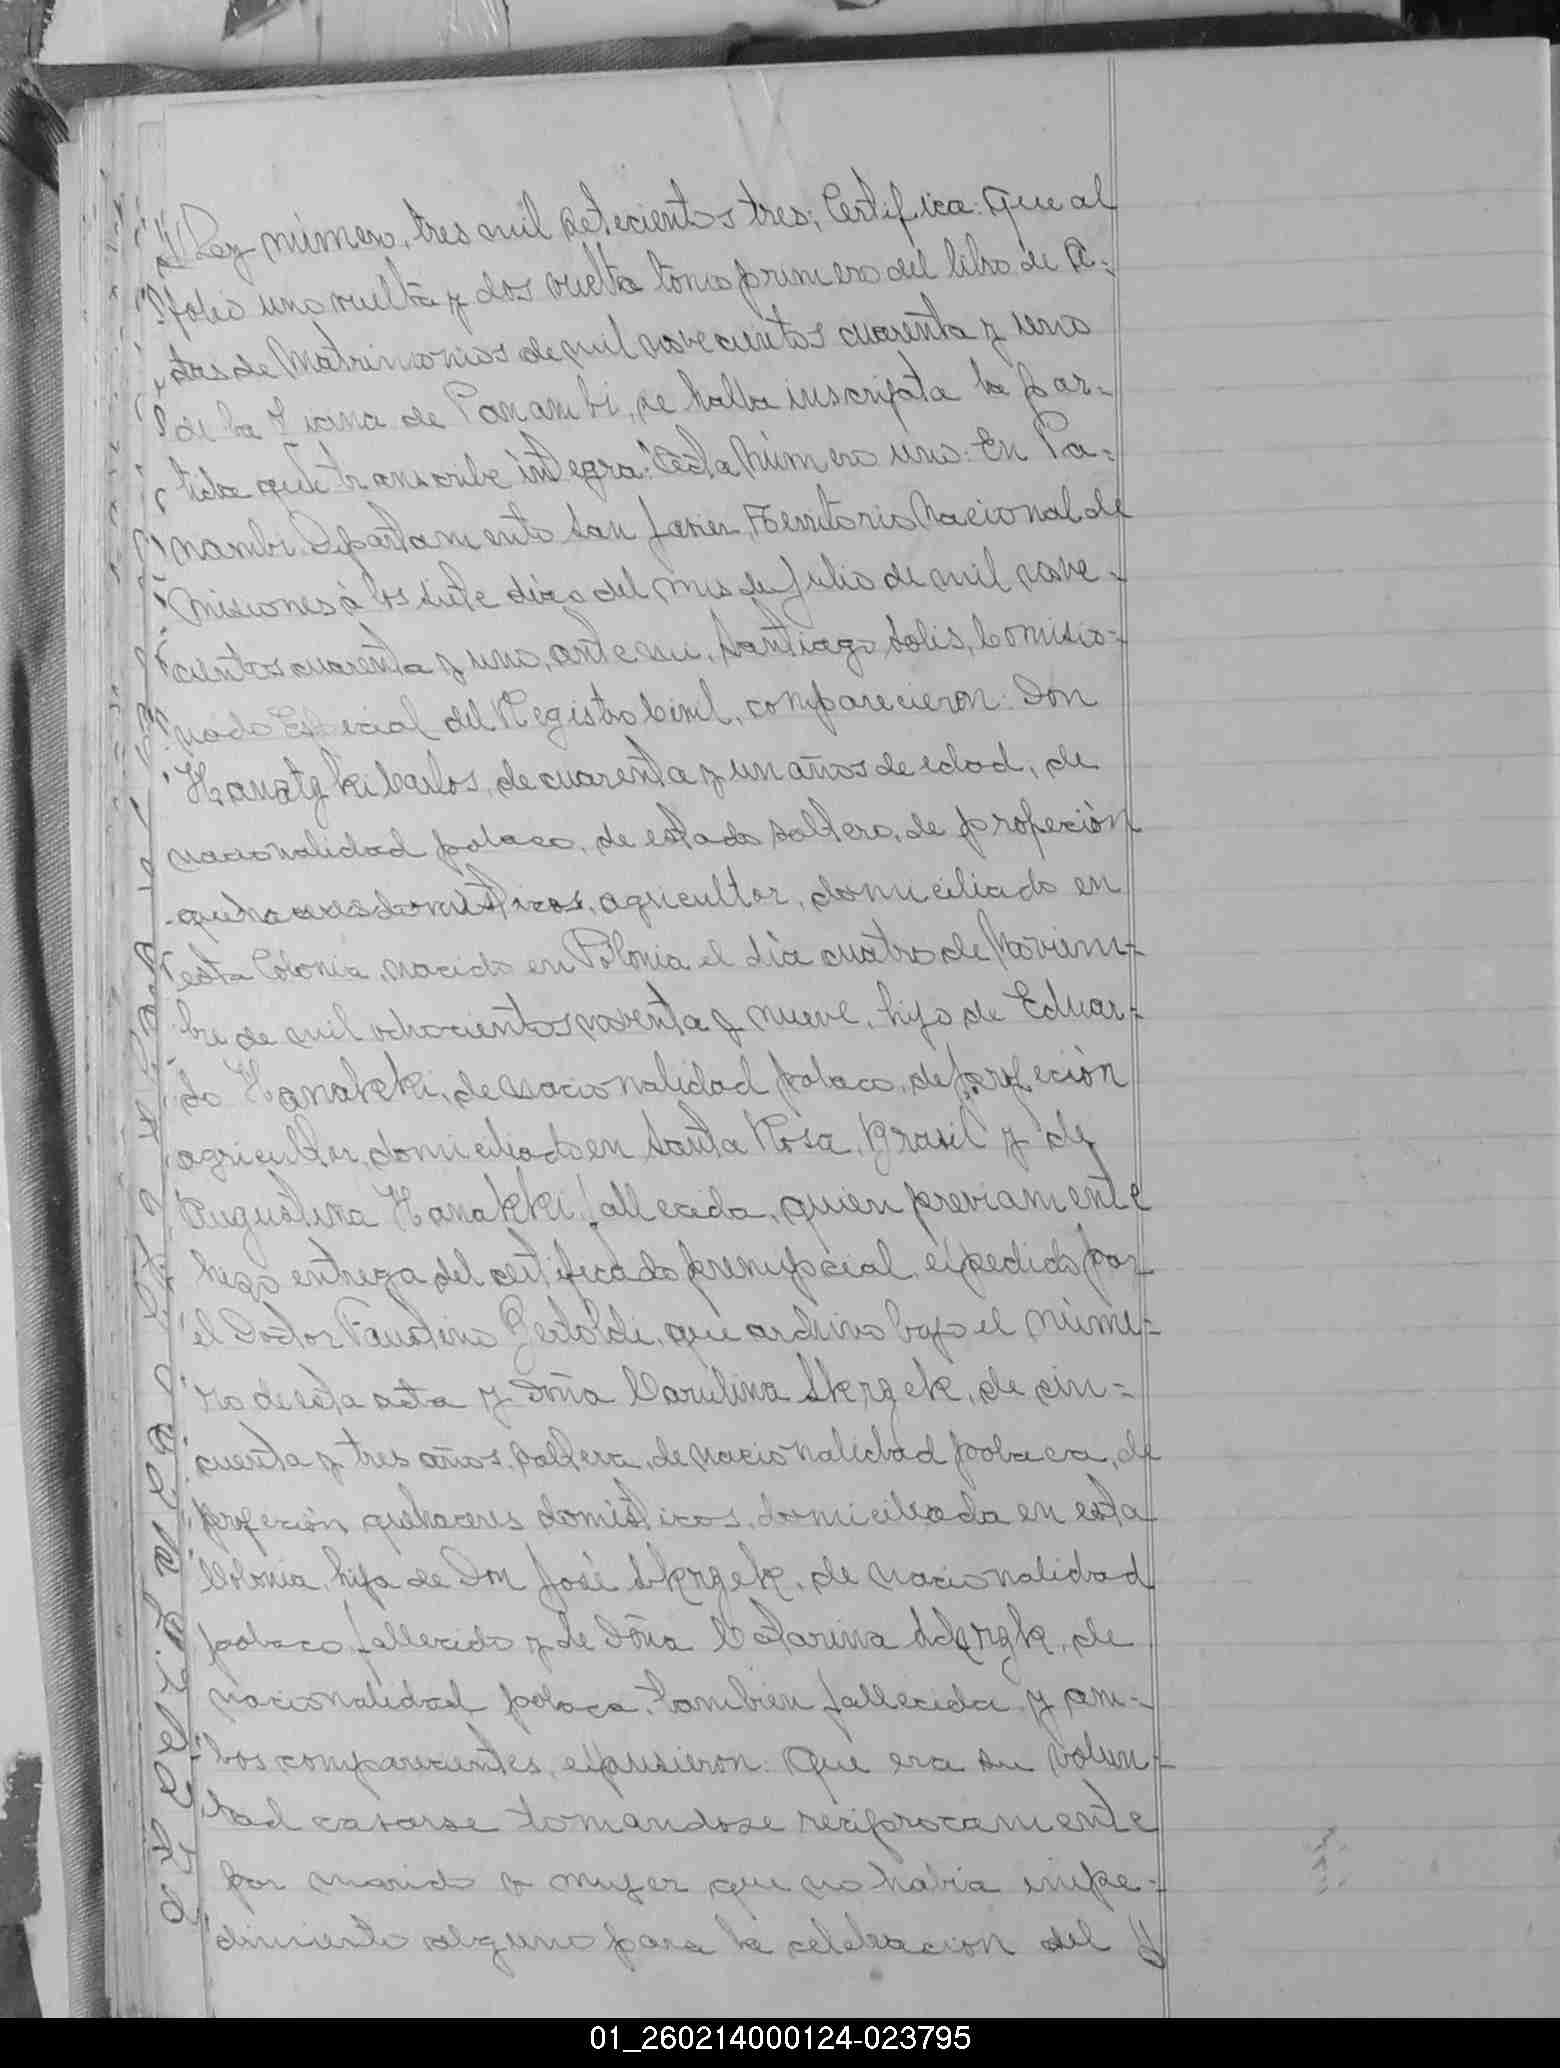 Ley número, tres mil setecientos tres; Certifica: Que al
folio uno vuelta y dos vuelta tomo primero del libro de Ac=
tas de Matrimonios de mil novecientos cuarenta y uno
de la de Panambi, se halla inscripta la par=
tida que transcribe íntegra: "Acta Número uno: En Pa=
nambi Departamento San Javier, Territorio Nacional de
Misiones à los siete dias del mes de Julio de mil nove=
cientos cuarenta y uno, ante mi, Santiago Solis, Comisio=
nado Especial del Registro Civil, comparecieron: Don
Carlos, de cuarenta y un años de edad, de
nacionalidad polaco, de estado soltero, de profeciòn
quehaceres domésticos, agricultor, domiciliado en
esta Colonia, nacido en Polonia el dia cuatro de Noviem=
bre de mil ochocientos noventa y nueve, hijo de Eduar=
do Hanakki, de nacionalidad polaco, de profeciòn
agricultor, domiciliado en Santa Rosa, Brasil y de
Augustina Hanakki, fallecida, quien previamente
hizo entrega del certificado prenupcial, expedido por
el Doctor Faustino que archivo bajo el núme=
ro de esta acta y Doña Carulina Skrzek, de cin=
cuenta y tres años, soltera, de nacionalidad polaca, de
profeción quehaceres domésticos, domiciliada en esta
Colonia, hija de Don José Skrzek, de nacionalidad
polaco, fallecido y de Doña Catarina de
nacionalidad polaca, tambien fallecida, y am=
bos comparecientes, expusieron: Que era su volun=
tad casarse tomandose reciprocamente
por marido y mujer que no habia impe=
dimiento alguno para la celebracion del
01_260214000124-023795